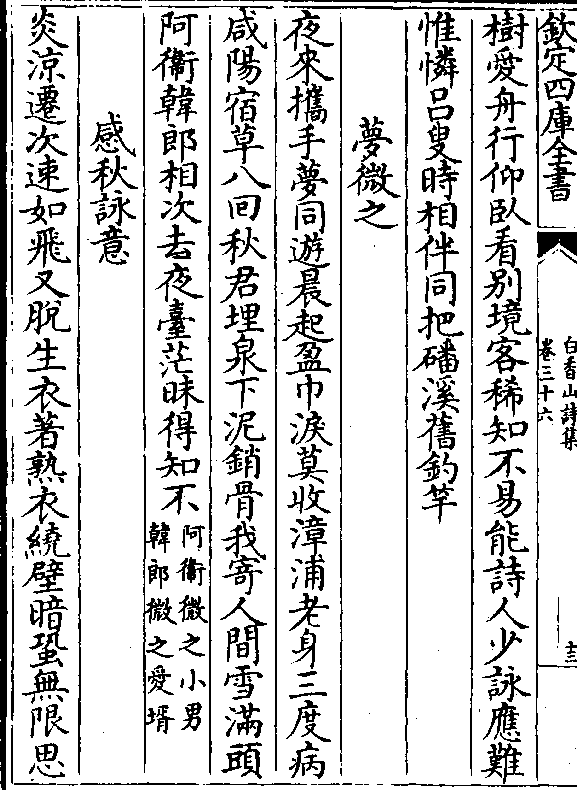 欽定四庫全書
白香山詩集
卷三十六
十三
樹愛舟行仰卧看别境客稀知不易能詩人少詠應難
惟憐吕叟時相伴同把磻溪舊釣竿
夢微之
夜來攜手夢同遊晨起盈巾淚莫收漳浦老身三度病
咸陽宿草八回秋君埋泉下泥銷骨我寄人間雪滿頭
阿衞韓郎相次去夜臺茫昧得知不
阿衞微之小男
韓郎微之愛壻
感秋詠意
炎涼遷次速如飛又脫生衣著熟衣繞壁暗蛩無限思